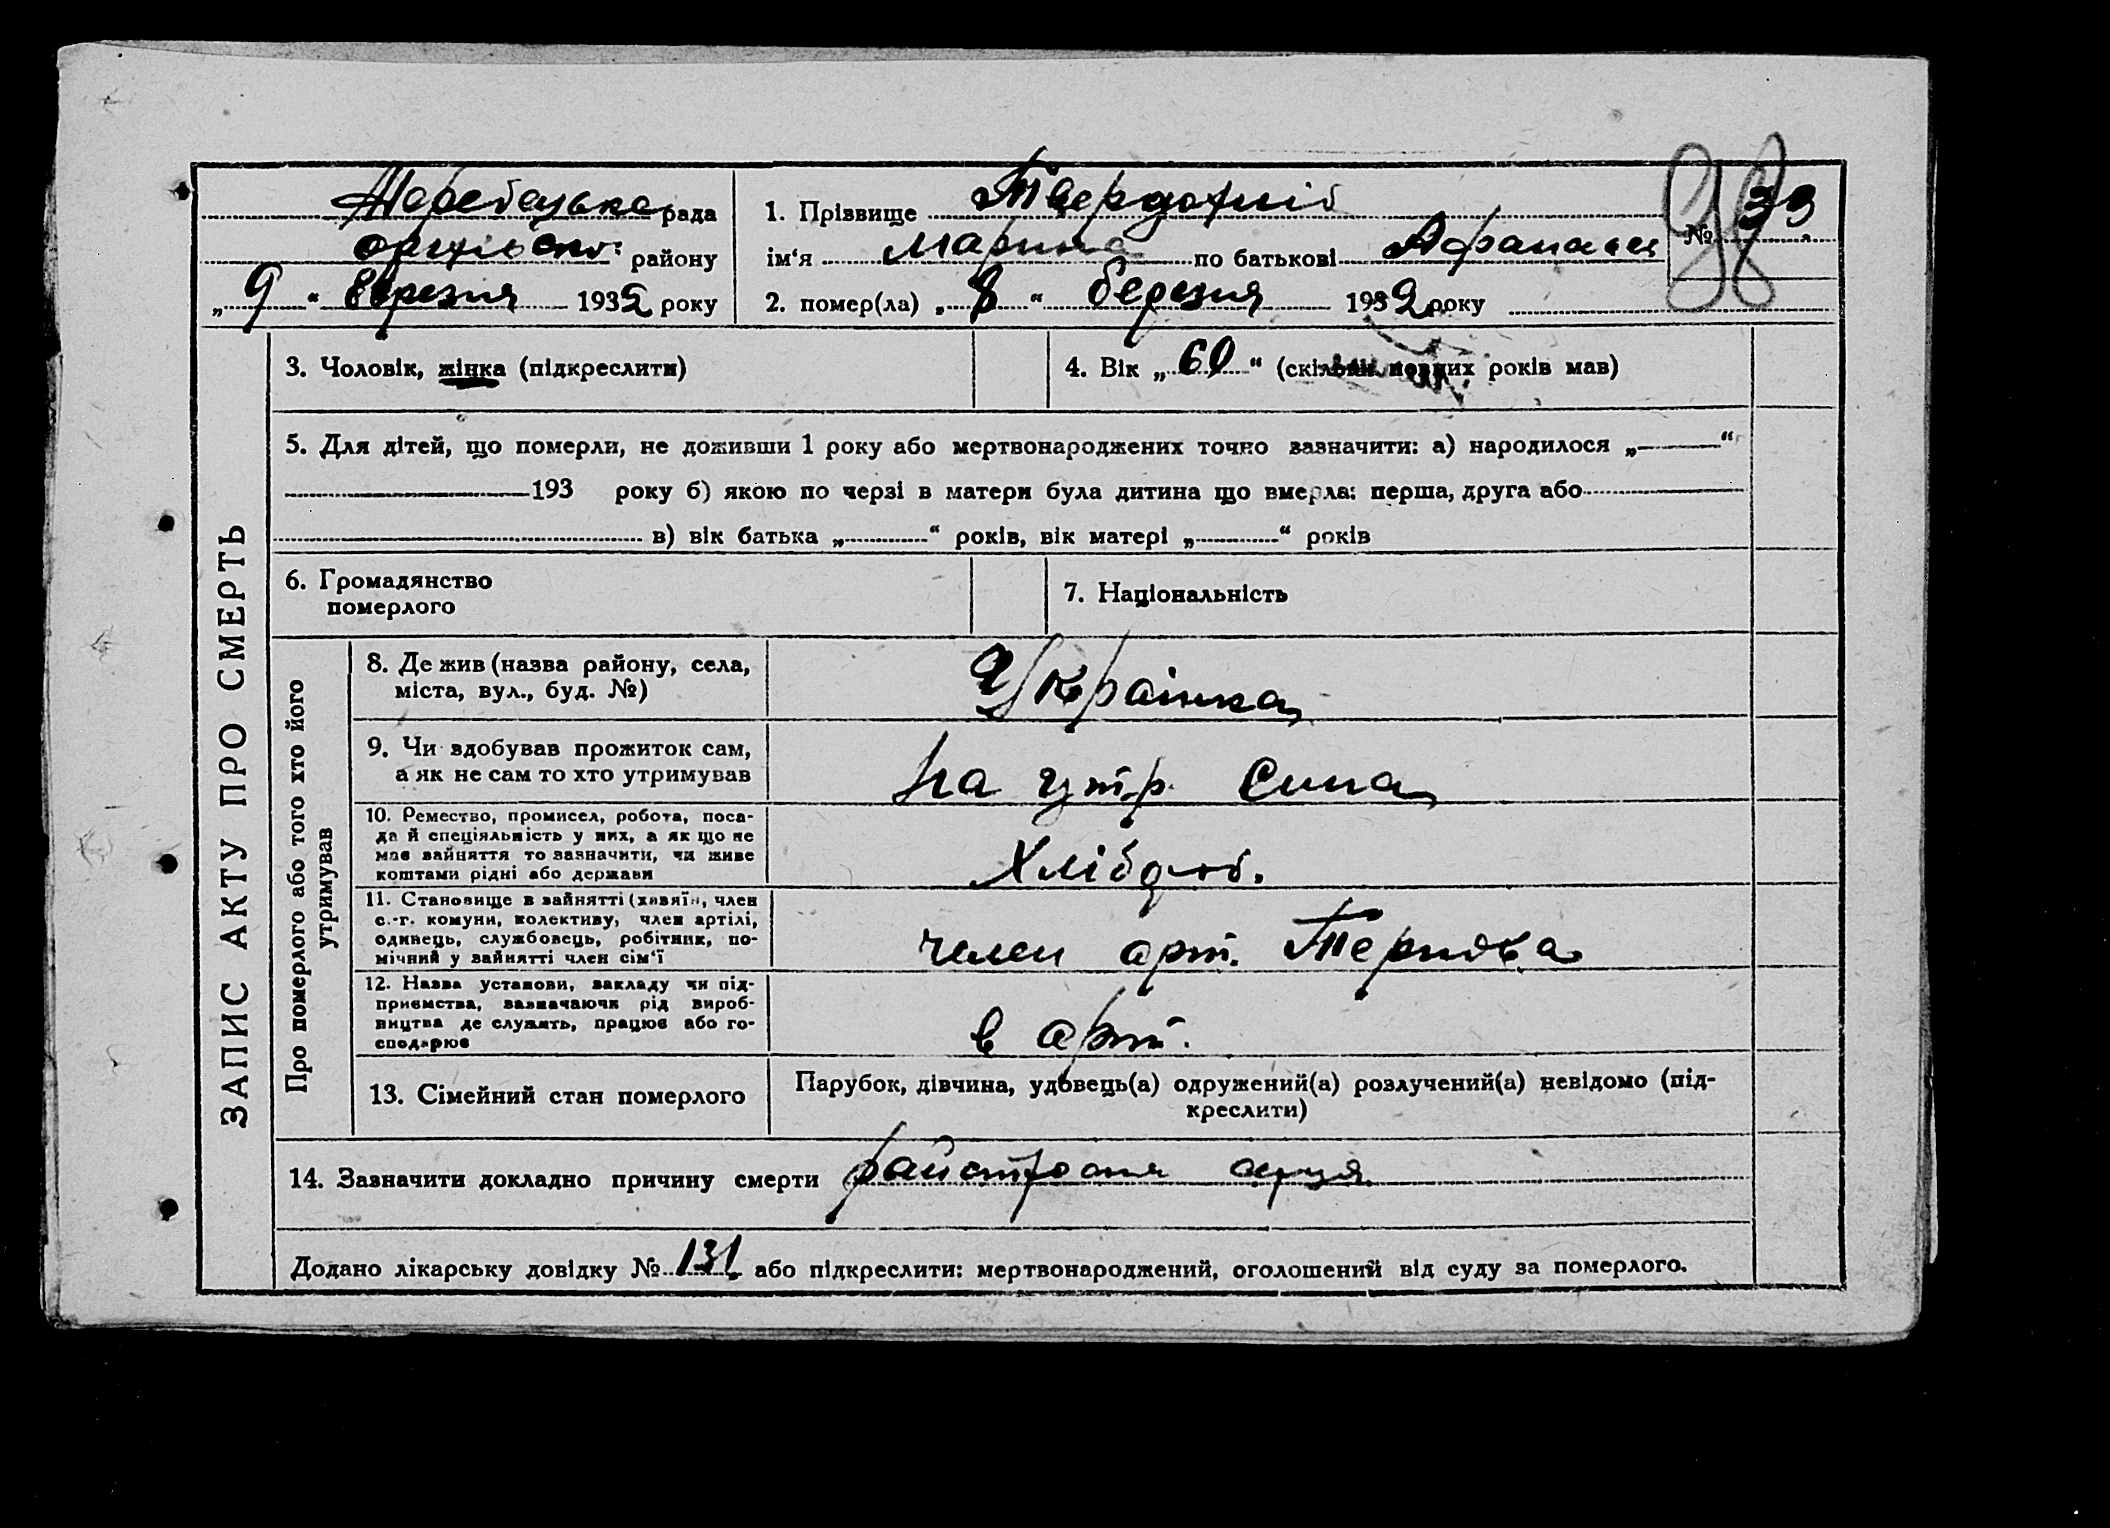 рада
району
„ 9 “ березня 1932 року
1. Прізвище Твердохліб
ім‘я Марина по батькові Афанасія
№ 33
98
2. помер(ла) „ 8 “ березня 1932 року
ЗАПИС АКТУ ПРО СМЕРТЬ
3. Чоловік, жінка (підкреслити)
4. Вік „ 60 “ (скільки повних років мав)
5. Для дітей, що померли, не доживши 1 року або мертвонароджених точно зазначити: а) народилося „ “
193 року б) якою по черзі в матери була дитина що вмерла: перша, друга або
в) вік батька „ “ років, вік матері „ “ років
6. Громадянство
померлого
7. Національність
Про померлого або того хто його
утримував
8. Де жив (назва району, села,
міста, вул., буд. №)
Українка
9. Чи здобував прожиток сам,
а як не сам то хто утримував
На утр. Сина
10. Ремество, промисел, робота, поса-
да й спеціяльність у них, а як що не
має зайняття то зазначити, чи живе
коштами рідні або держави
Хлібороб.
11. Становище в зайнятті (хазяїн, член
с.-г. комуни, колективу, член артілі,
одинець, службовець, робітник, по-
мічний у зайнятті член сім‘ї
член арт.
12. Назва установи, закладу чи під-
приємства, зазначаючи рід вироб-
ництва де служить, працює або го-
сподарює
в арт.
13. Сімейний стан померлого
Парубок, дівчина, удовець(а) одружений(а) розлучений(а) невідомо (під-
креслити)
14. Зазначити докладно причину смерти серця
Додано лікарську довідку № 131 або підкреслити: мертвонароджений, оголошений від суду за померлого.